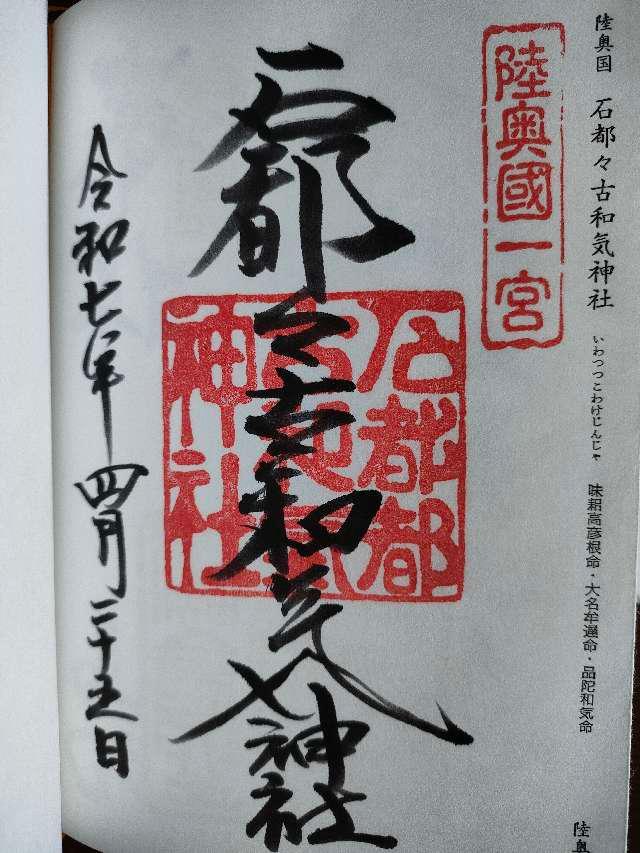 陸奥国 石都々古和気神社 いわつつこわけじんじゃ 味耜高彦根命・大名牟遅命・品陀和気命
陸奥國一宮
石都々古和気神社
石都都
神社
令和七年四月二十五日
陸奥